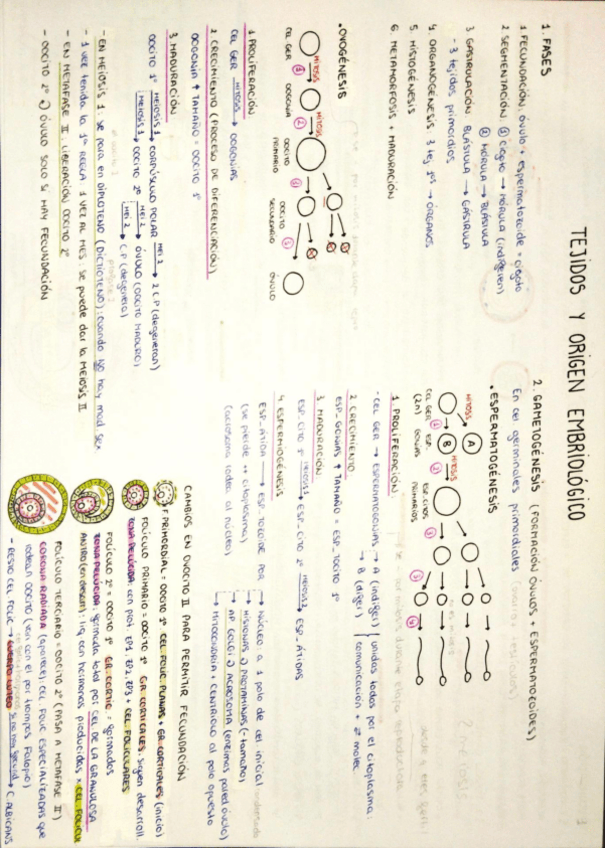 TEJIDOS Y ORIGEN EMBRIOLÓGICO
1. FASES
1 FECUNDACIÓN: óvulo + espermatozoide = cigoto
2 SEGMENTACIÓN: ① cigoto → MÓRULA (indigieren)
② MÓRULA → BLÁSTULA
3 GASTRULACIÓN: BLÁSTULA → GÁSTRULA
- 3 tejidos primordios
4. ORGANOGÉNESIS: 3 tej 1ºs → ÓRGANOS
5. HISTOGÉNESIS
6. METAMORFOSIS + MADURACIÓN
• OVOGÉNESIS
MITOSIS MITOSIS
① ② ③ ③
CEL GER OOGONIA OOCITO PRIMARIO OOCITO SECUNDARIO ÓVULO
1 PROLIFERACIÓN
CEL GER MITOSIS → OOGONIAS
2 CRECIMIENTO (PROCESO DE DIFERENCIACIÓN)
OOGONIA ↑ TAMAÑO = OOCITO 1º
3 MADURACIÓN
OOCITO 1º MEIOSIS 1 → CORPÚSCULO POLAR MEI 2 → 2 C.P (degeneran)
MEIOSIS 1 → OOCITO 2º MEI 2 → ÓVULO (OOCITO MADURO)
MEI 2 → C.P (degenera)
- EN MEIOSIS 1: se para en DIPLOTENO (DICTIOTENO): cuando NO hay mad sex
- 1 vez tenida la 1ª REGLA: 1 VEZ AL MES se puede dar la MEIOSIS II
- EN METAFASE II: LIBERACIÓN OOCITO 2º
- OOCITO 2º → ÓVULO SOLO SI HAY FECUNDACIÓN
2. GAMETOGÉNESIS (FORMACIÓN ÓVULOS + ESPERMATOZOIDES)
En cel germinales primordiales
• ESPERMATOGÉNESIS
MITOSIS A
B MITOSIS
① ② ③ ④
CEL GER (2n) ESP. GONIAS ESP. CITOS PRIMARIOS
1. PROLIFERACIÓN
- CEL GER → ESPERMATOGONIAS → A (indiger) unidas todas por el citoplasma:
→ B (difer) comunicación + ⇄ molec
2 CRECIMIENTO
ESP_GONIAS ↑ TAMAÑO = ESP_TOCITO 1º
3 MADURACIÓN
ESP_CITO 1º MEIOSIS 1 → ESP_CITO 2º MEIOSIS 2 → ESP. ÁTIDAS
4. ESPERMIOGÉNESIS
ESP_ÁTIDA → ESP_TOZOIDE POR → NÚCLEO: a 1 polo de cel inicial
(se pierde ++ citoplasma) → HISTONAS → PROTAMINAS (- tamaño)
(acrosoma rodea al núcleo) → AP. GOLGI → ACROSOMA (enzimas pared óvulo)
→ MITOCONDRIA + CENTRIOLO al polo opuesto
CAMBIOS EN OVOCITO II PARA PERMITIR FECUNDACIÓN
PRIMORDIAL = OOCITO 1º CEL FOLIC. PLANAS + GR CORTICALES (inicio)
FOLÍCULO PRIMARIO = OOCITO 1º GR CORTICALES siguen desarroll.
ZONA PELÚCIDA: con prot ZP1 ZP2, ZP3 + CEL FOLICULARES
FOLÍCULO 2º = OOCITO 1º GR. CORTIC = formados
ZONA PELÚCIDA: formada total por CEL DE LA GRANULOSA
ANTRO: liq con hormonas producidas x CEL FOLICU
FOLÍCULO TERCIARIO = OOCITO 2º (PASA A METAFASE II)
CORONA RADIADA (aparece): CEL FOLIC ESPECIALIZADAS que
rodean OOCITO (van con él por trompas Falopio)
- RESTO CEL FOLIC → CUERPO LÚTEO → C. ALBICANS